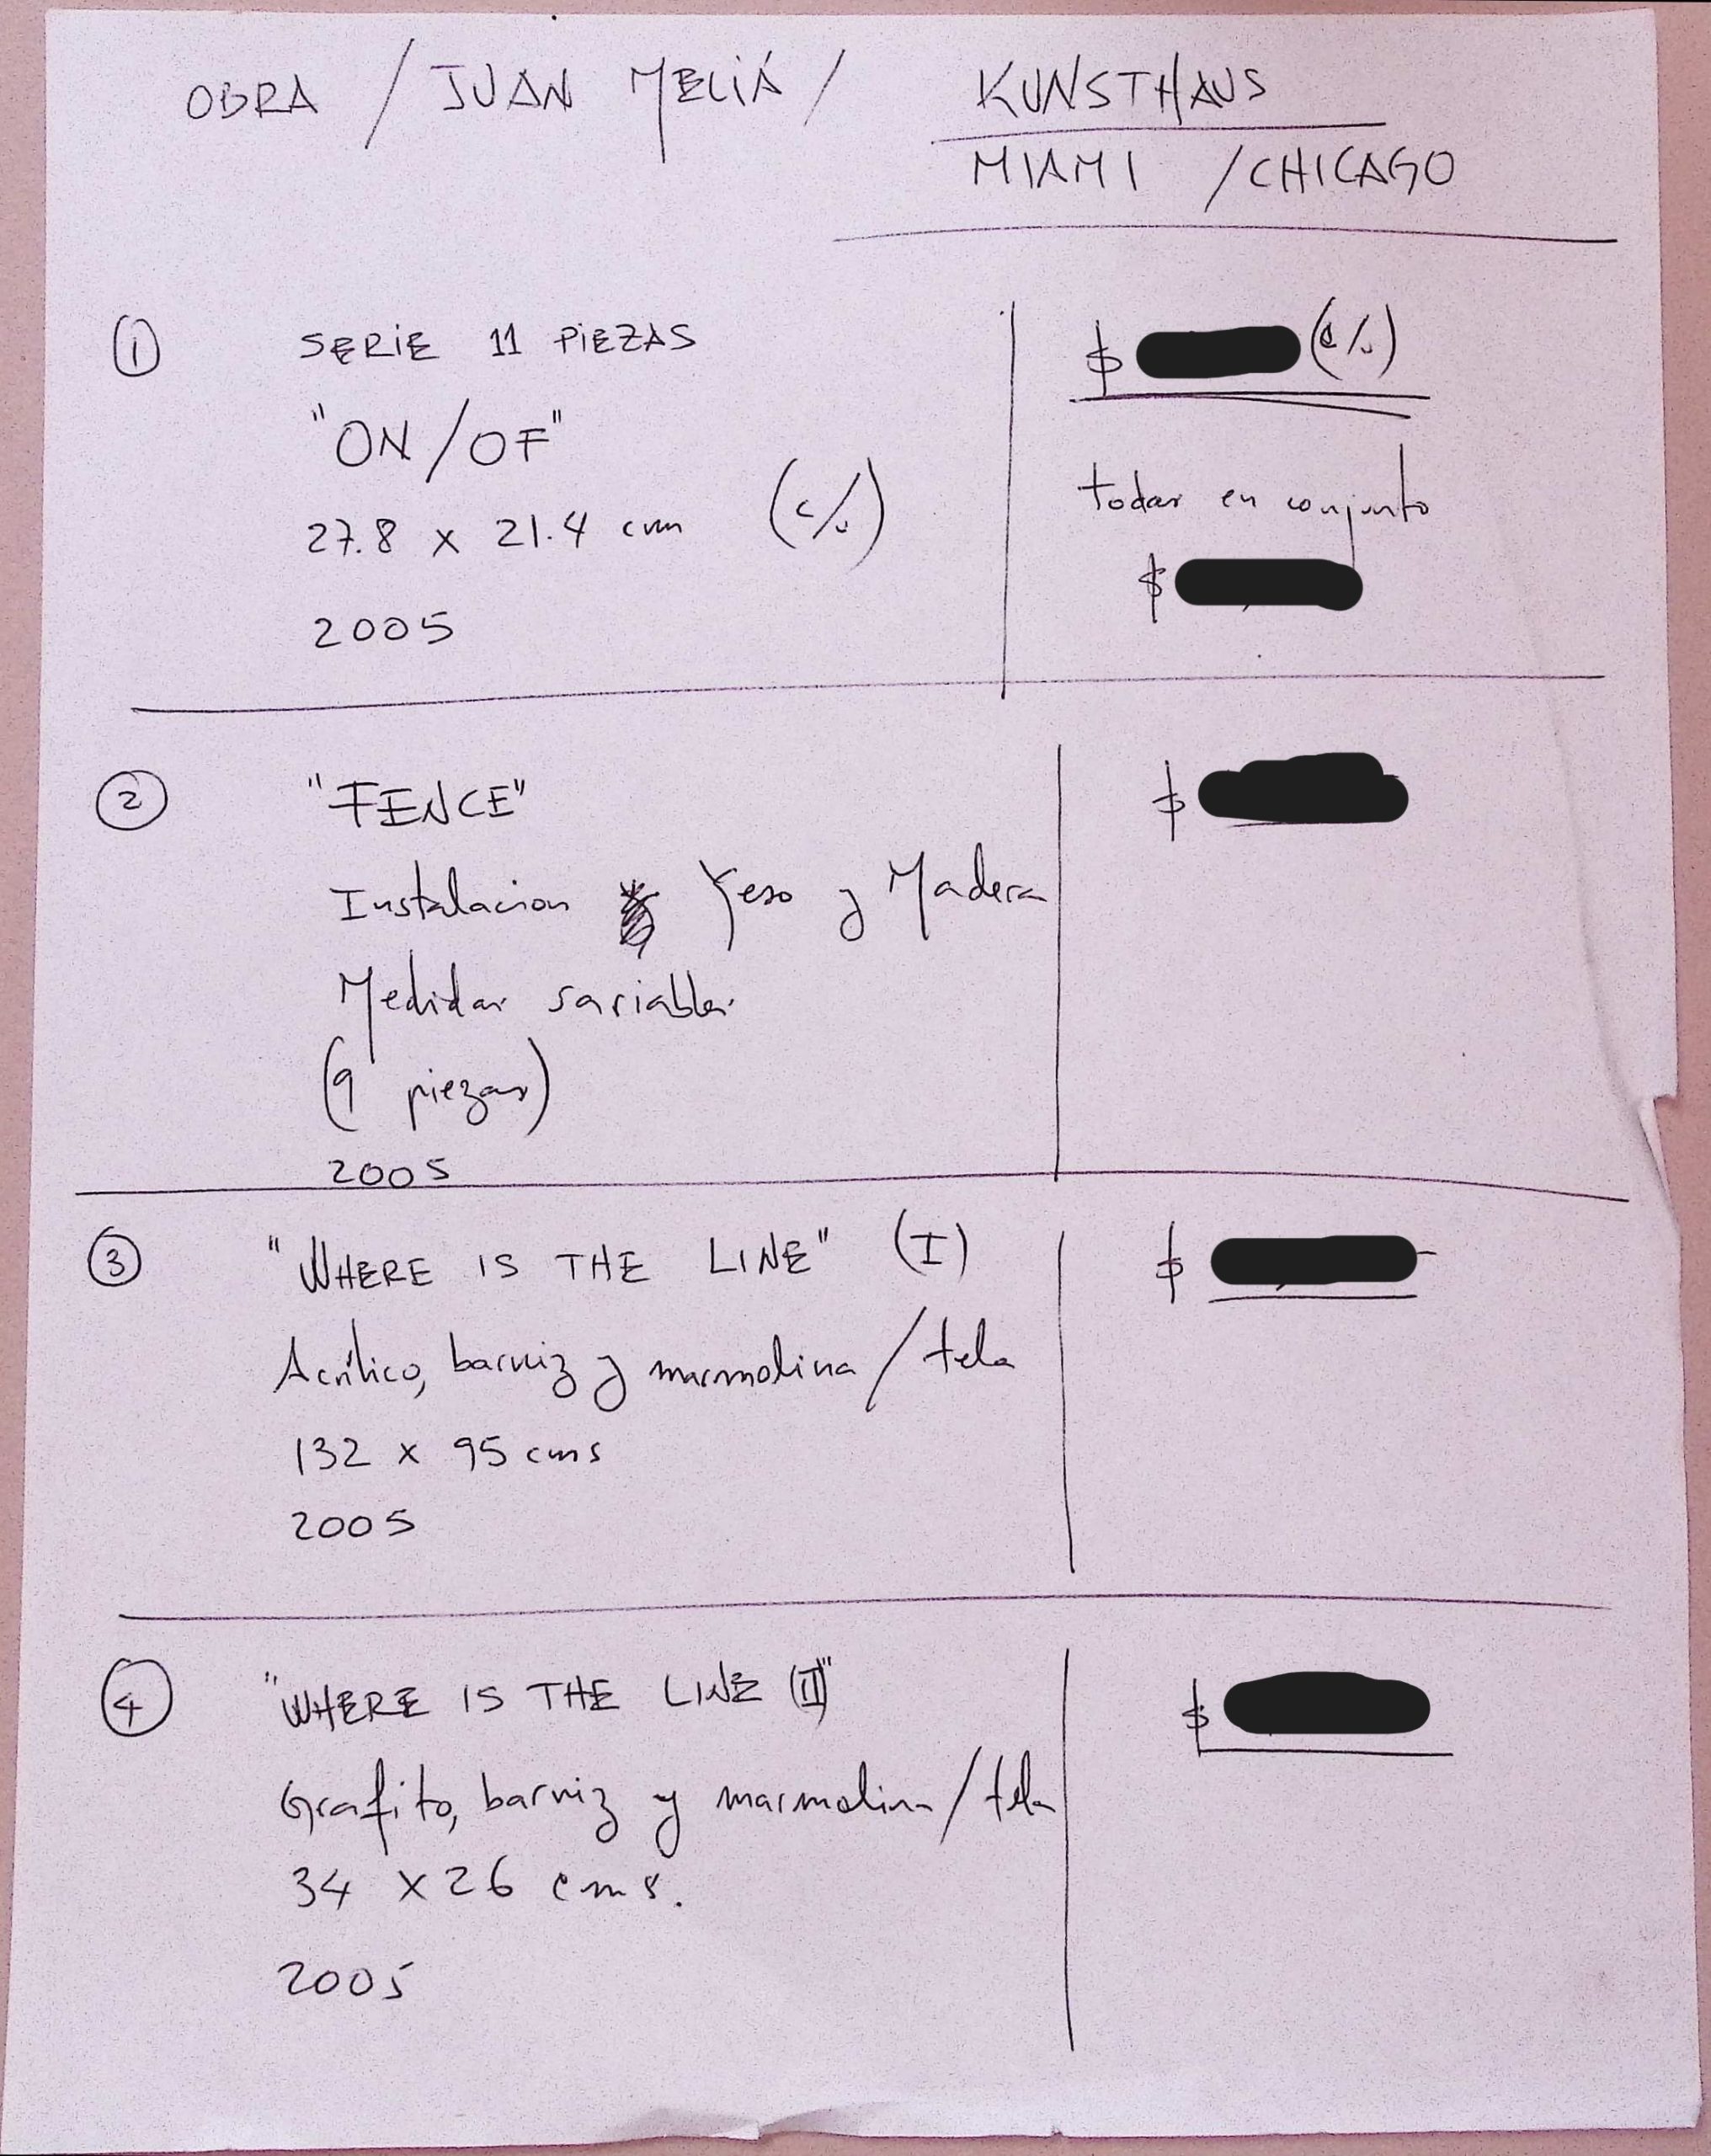 OBRA / JUAN MELIÁ / KUNSTHAUS
MIAMI / CHICAGO
1 SERIE 11 PIEZAS
"ON/OF"
27.8 x 21.4 cm (c/u)
2005
$ (c/u)
todas en conjunto
$
2 "FENCE"
Instalacion Yeso y Madera
Medidas variables
(9 piezas)
2005
$
3 "WHERE IS THE LINE" (I)
Acrílico, barniz y marmolina / tela
132 x 95 cms
2005
$
4 "WHERE IS THE LINE (II)"
Grafito, barniz y marmolina / tela
34 x 26 cms.
2005
$